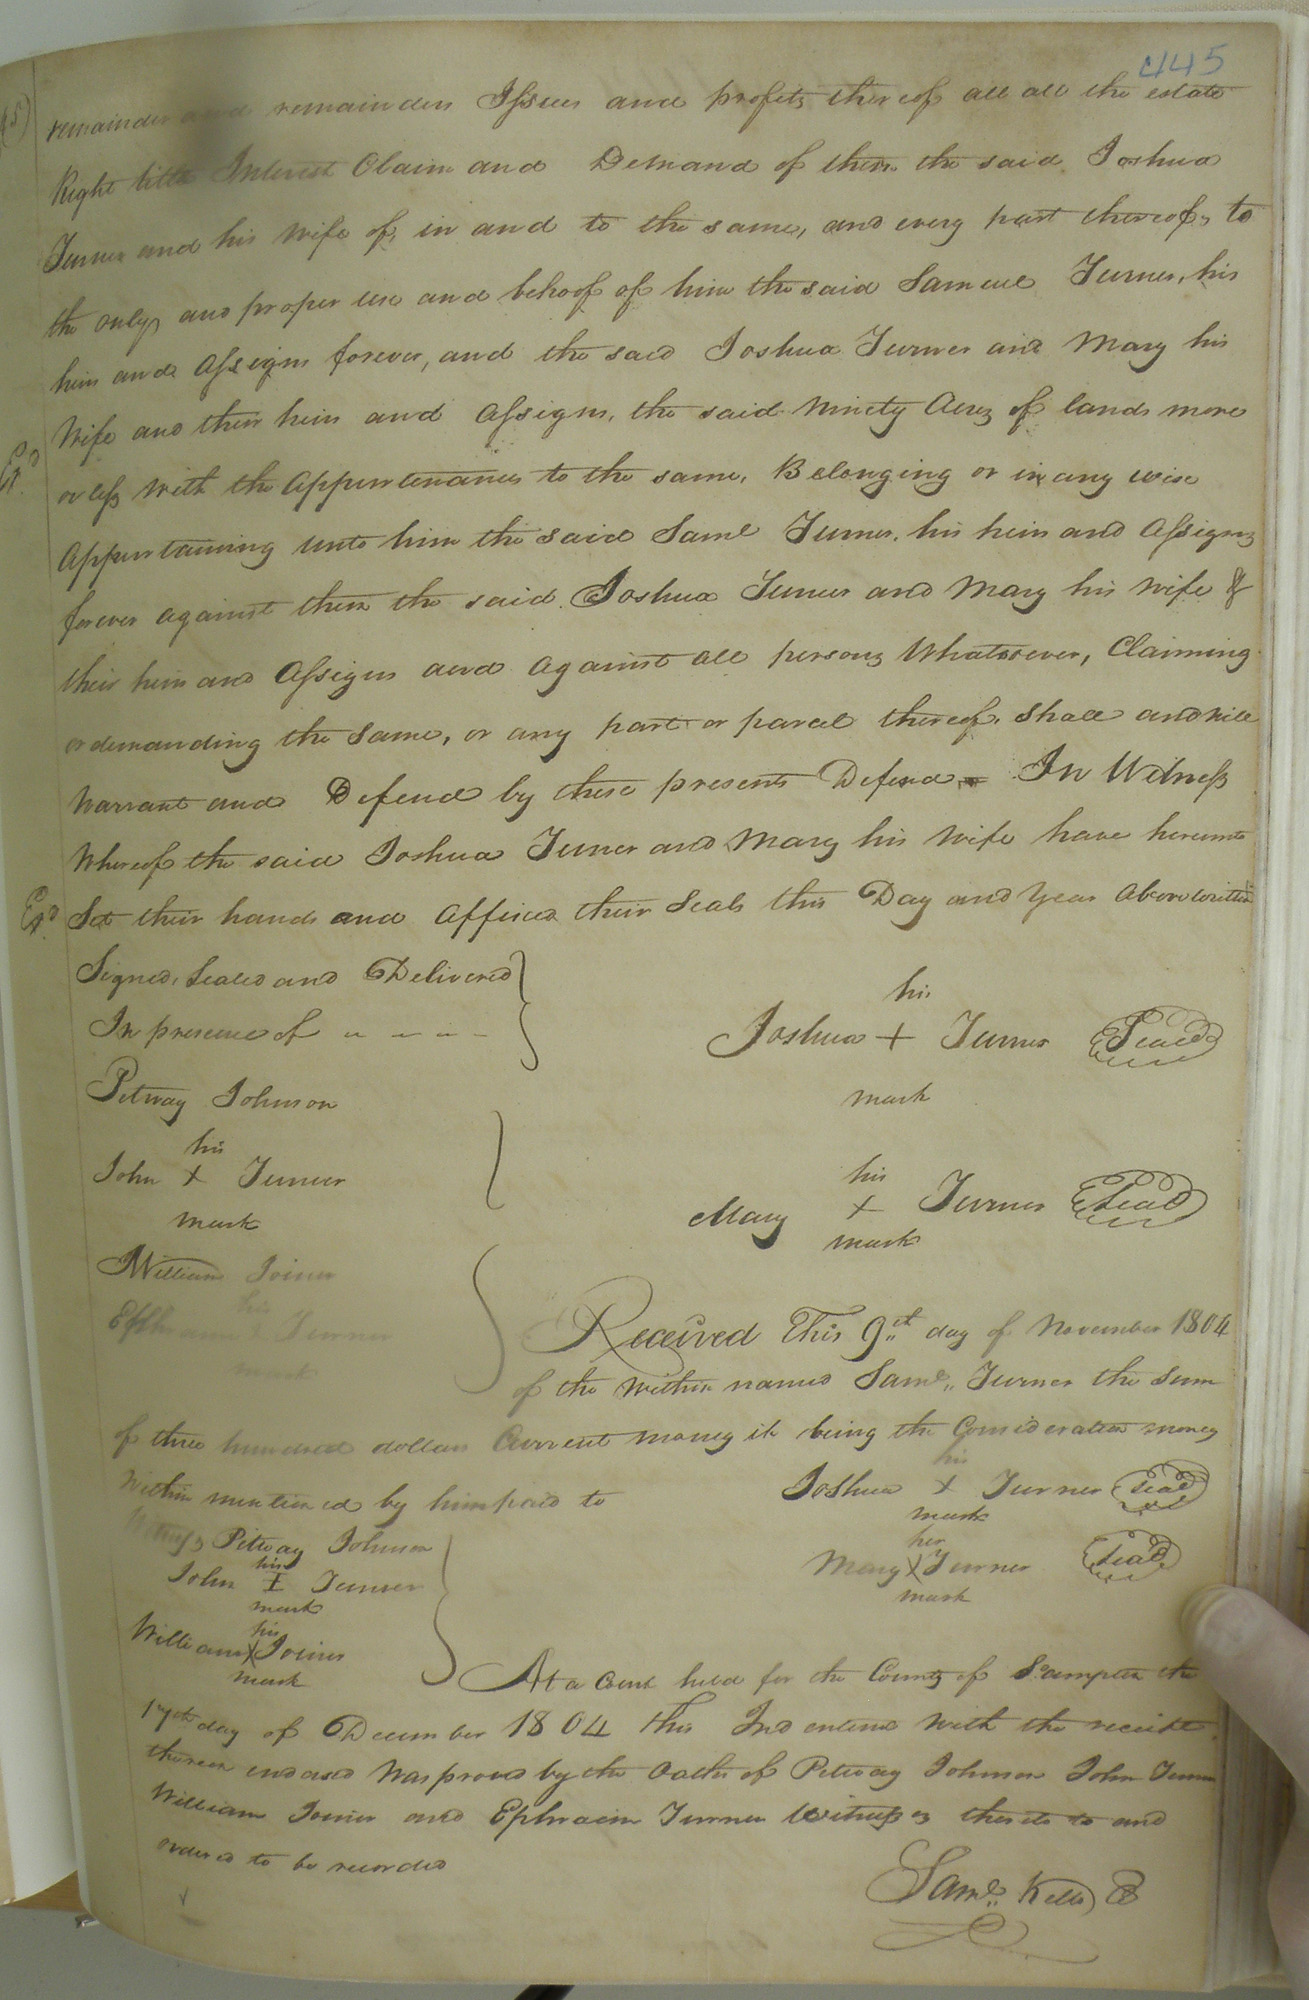 445
remainder and remainders Issues and profits thereof all all the estate
Right title Interest Claim and Demand of them the said Joshua
Turner and his Wife of, in and to the same, and every part thereof, to
the only, and proper use and behoof of him the said Samuel Turner, his
heirs and Assigns forever, and the said Joshua Turner and Mary his
Wife and their heirs and Assigns, the said Ninety Acres of lands more
or less With the Appurtenances to the same, Belonging or in any wise
Appurtaining unto him the said Saml Turner, his heirs and Assigns
forever against them the said Joshua Turner and Mary his Wife &
their heirs and Assigns and against all persons Whatsoever, Claiming
or demanding the Same, or any part or parcel thereof, Shall and Will
Warrant and Defend by these presents Defend In Witness
Whereof the said Joshua Turner and Mary his Wife have hereunto
Exd Set their hands and Affixed their Seals this Day and Year Above Written
Signed, Sealed and Delivered
In presence of
his
Joshua + Turner Seal
mark
Petway Johnson
his
John + Turner
mark
his
Mary + Turner Seal
mark
William Joiner
his
Ephraim + Turner
mark
Received This 9th day of November 1804
of the Within named Saml Turner the Sum
of three hundred dollars Current money it being the Consideration money
Within mentioned by him paid to
his
Joshua + Turner Seal
mark
her
Mary X Turner Seal
mark
Witness Petway Johnson
his
John + Turner
mark
his
William X Joiner
mark
At a Court held for the County of the
day of December 1804 This Indenture With the receipt
thereon endorsed Was proved by the Oaths of Petway Johnson John Turner
William Joiner and Ephraim Turner Witnesses thereto and
ordered to be recorded
Saml Kello